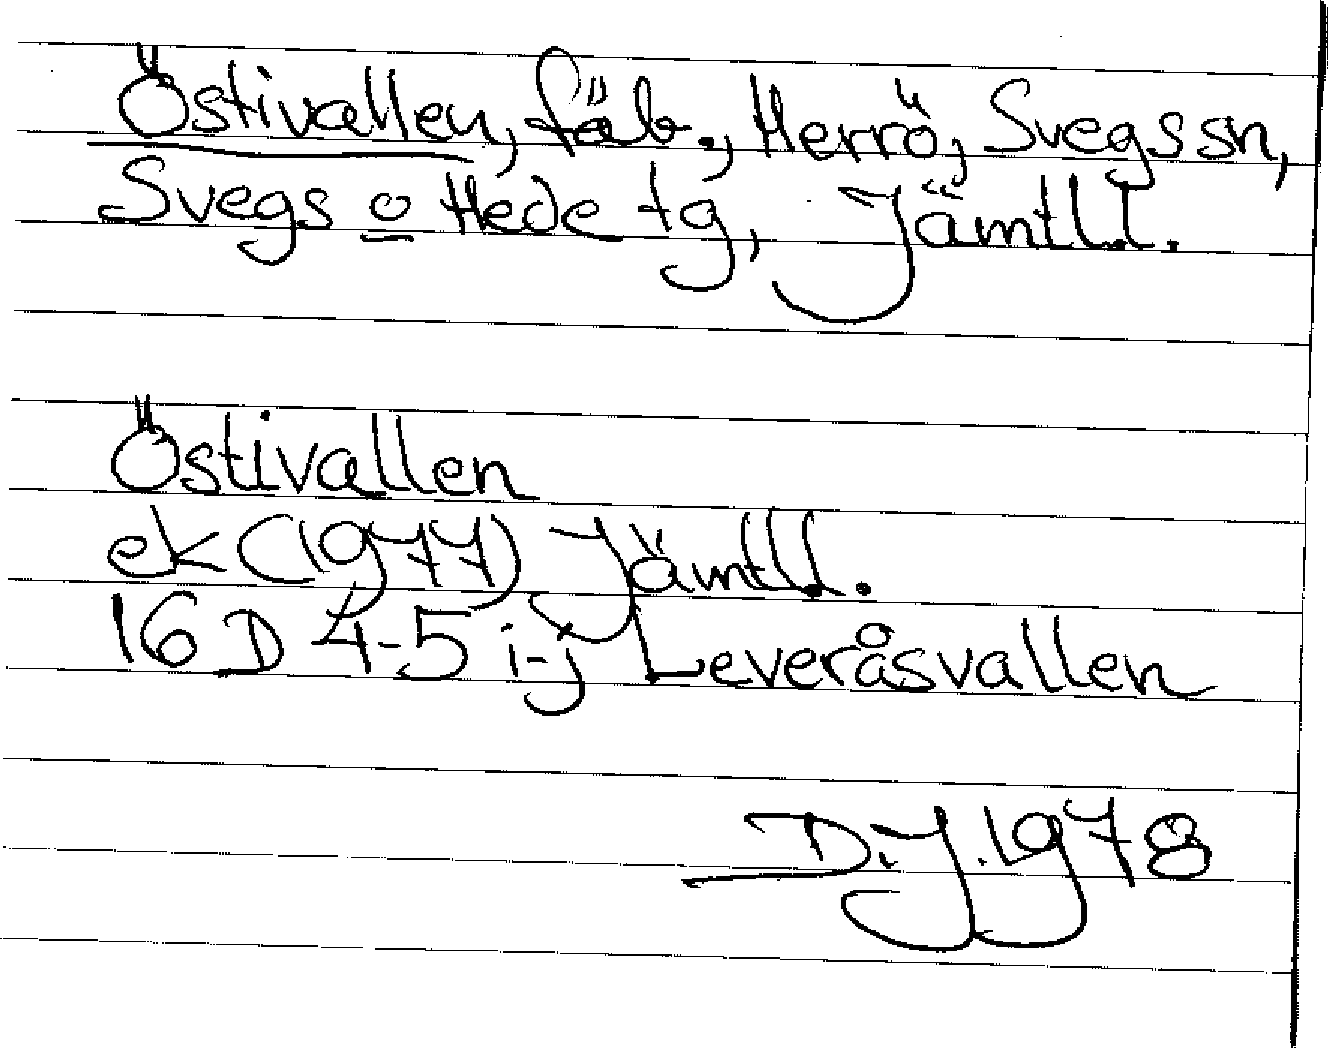 Östivallen, fäb., Herrö, Svegs sn,
Svegs o Hede tg, Jämtl.l.
Östivallen
ek (1977) Jämtl.l.
16 D 4-5 i-j Leveråsvallen
D.J. 1978